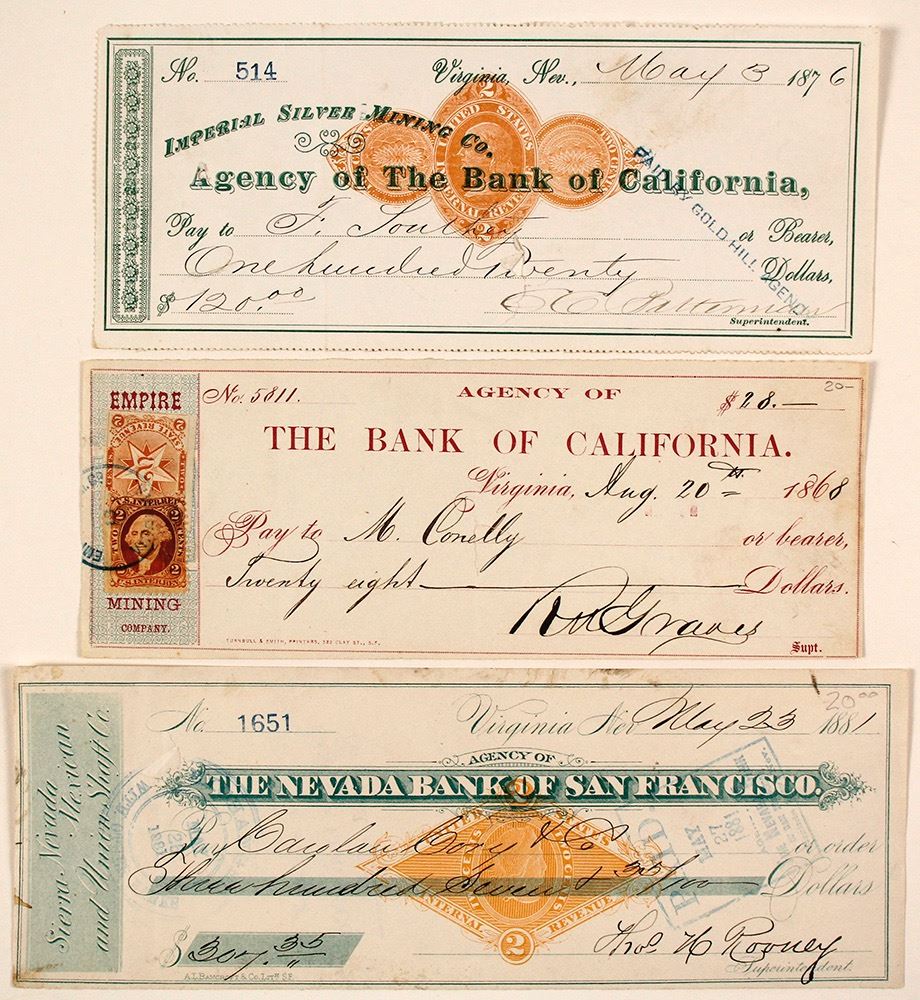 No. 514 Virginia, Nev., May 3 1876
IMPERIAL SILVER MINING CO.
Agency of The Bank of California,
Pay to F. or Bearer,
One hundred twenty Dollars,
$ 120.00
Superintendent.
2
UNITED STATES
INTERNAL REVENUE
PAID BY GOLD HILL AGENCY
EMPIRE
MINING
COMPANY.
U.S. INTER. REV.
2 2
TWO CENTS
U.S. INTER. REV.
No. 5811. AGENCY OF $ 28.—
20-
THE BANK OF CALIFORNIA.
Virginia, Aug. 20th 1868
Pay to M. Conelly or bearer,
Twenty eight Dollars.
Graves
Supt.
TURNBULL & SMITH, PRINTERS, CLAY ST., S.F.
Sierra Nevada
Mexican
and Union Shaft Co.
20.00
No. 1651 Virginia Nev May 23 1881
AGENCY OF
THE NEVADA BANK OF SAN FRANCISCO.
Pay & Co or order
Three hundred Seven & 35/100 Dollars
$ 307.35
Thos H Rooney
Superintendent.
INTERNAL REVENUE
2
PAID
MAY
27
1881
A.L. BANCROFT & CO. LITH. S.F.